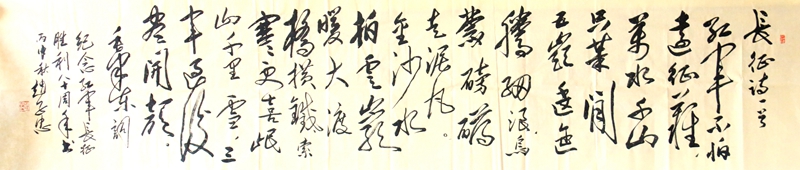 长征诗一首
红军不怕
远征难,
萬水千山
只等闲
五嶺逶迤
腾细浪,乌
蒙磅礴
走泥丸。
金沙水
拍雲崖
暖大渡
橋横鐵索
寒更喜岷
山千里雪。三
军过後
尽开颜。
毛泽东词
纪念红军长征
胜利八十周年书
丙申秋